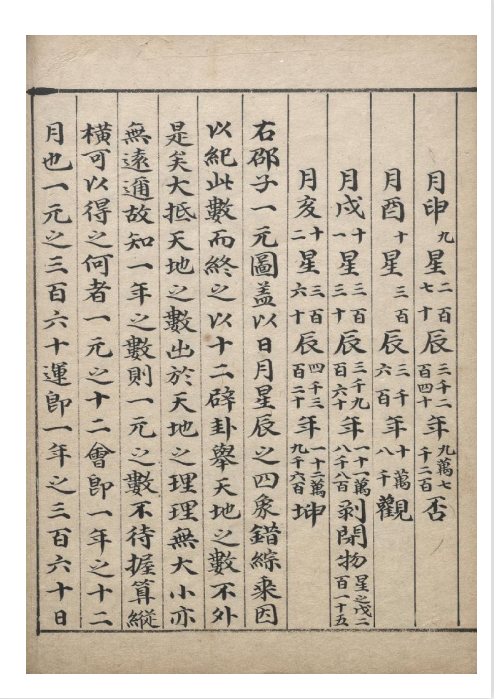 月申九星二百七十辰三千二百四十年九萬七千二百否
月酉十星三百辰三千六百年十萬八千觀
月戌十一星三百三十辰三千九百六十年一十一萬八千八百剥閉物星之戊二百一十五
月亥十二星三百六十辰四千三百二十年一十二萬九千六百坤
右邵子一元圖盖以日月星辰之四象錯綜乘因
以紀此數而終之以十二辟卦舉天地之數不外
是矣大抵天地之數出於天地之理理無大小亦
無遠邇故知一年之數則一元之數不待握算縱
橫可以得之何者一元之十二會即一年之十二
月也一元之三百六十運即一年之三百六十日